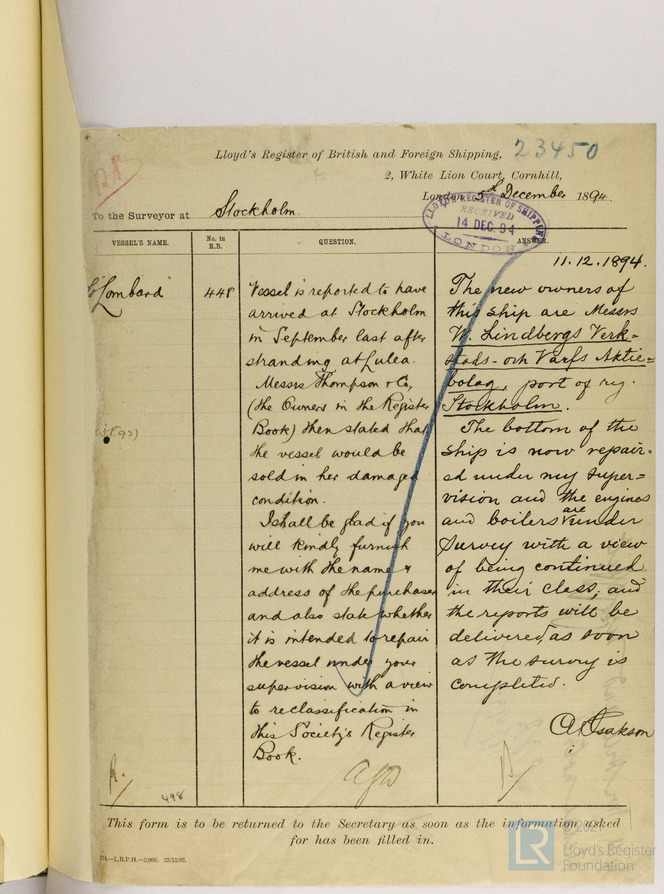 23450
Lloyd's Register of British and Foreign Shipping,
2, White Lion Court, Cornhill,
London 5th December 1894
LLOYD'S REGISTER OF SHIPPING
RECEIVED
14 DEC. 94
LONDON
To the Surveyor at Stockholm.
VESSEL'S NAME.
No. in
R.B.
QUESTION.
ANSWER.
"Lombard"
448
Vessel is reported to have
arrived at Stockholm
in September last after
stranding at Lulea.
Messrs Thompson & Co,
(the Owners in the Register
Book) then stated that
the vessel would be
sold in her damaged
condition.
I shall be glad if you
will kindly furnish
me with the name &
address of the purchaser
and also state whether
it is intended to repair
the vessel under your
supervision with a view
to reclassification in
this Society's Register
Book.
11.12.1894.
The new owners of
this ship are Messrs
W. Lindbergs Verk=
stads- och Varfs Aktie=
bolag, port of reg.
Stockholm.
The bottom of the
ship is now repair=
ed under my super=
vision and the engines
and boilers are under
survey with a view
of being continued
in their class, and
the reports will be
delivered, as soon
as the survey is
completed.
A. Isakson
498
This form is to be returned to the Secretary as soon as the information asked
for has been filled in.
174.—L.R.P.H.—3,000. 23/11/92.
LR
© 2021
Lloyd's Register
Foundation